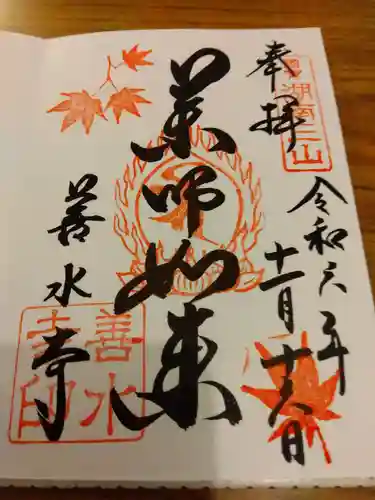 奉拝
湖南三山
令和六年
十一月十六日
薬師如来
善水寺
善水
寺印